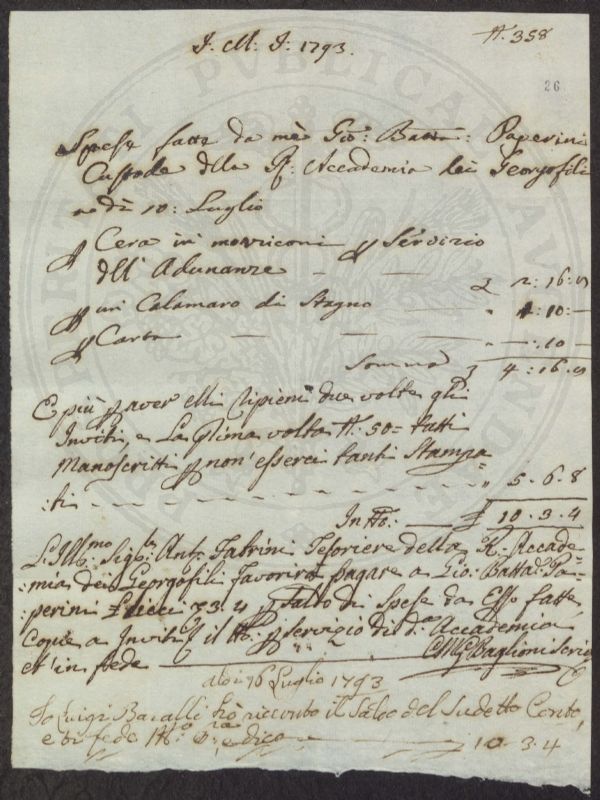 J. M. J. 1793.
N. 358
26
Spese fatte da me Gio: Batta: Paperini
Custode della R. Accademia dei Georgofili
a dì 10: Luglio
p Cera in mozziconi p Servizio
dell' Adunanze 2: 16:
p un Calamaro di Stagno 1: 10: —
p Carta — —: 10 —
Somma 4: 16:
E più p aver ripieni due volte gli
Inviti, e La prima volta N. 50= tutti
Manoscritti p non esserci tanti Stampa=
:ti - - - - 5. 6. 8
In tto: — £ 10. 3. 4
L'Illmo Sigre Anto Fabrini Tesoriere della R. Accade=
:mia dei Georgofili Favorirà pagare a Gio: Batta: Pa=
:perini £ dieci 3. 4 p Saldo di Spese da Esso fatte,
Copie a Inviti, il tto: p servizio di da Accademia
et in fede — Baglioni
adi 16 Luglio 1793
Io Luigi Bacalli hò riceuto il Saldo del Sudetto Conto,
e di fede Mo. Pa. dico — 10. 3. 4